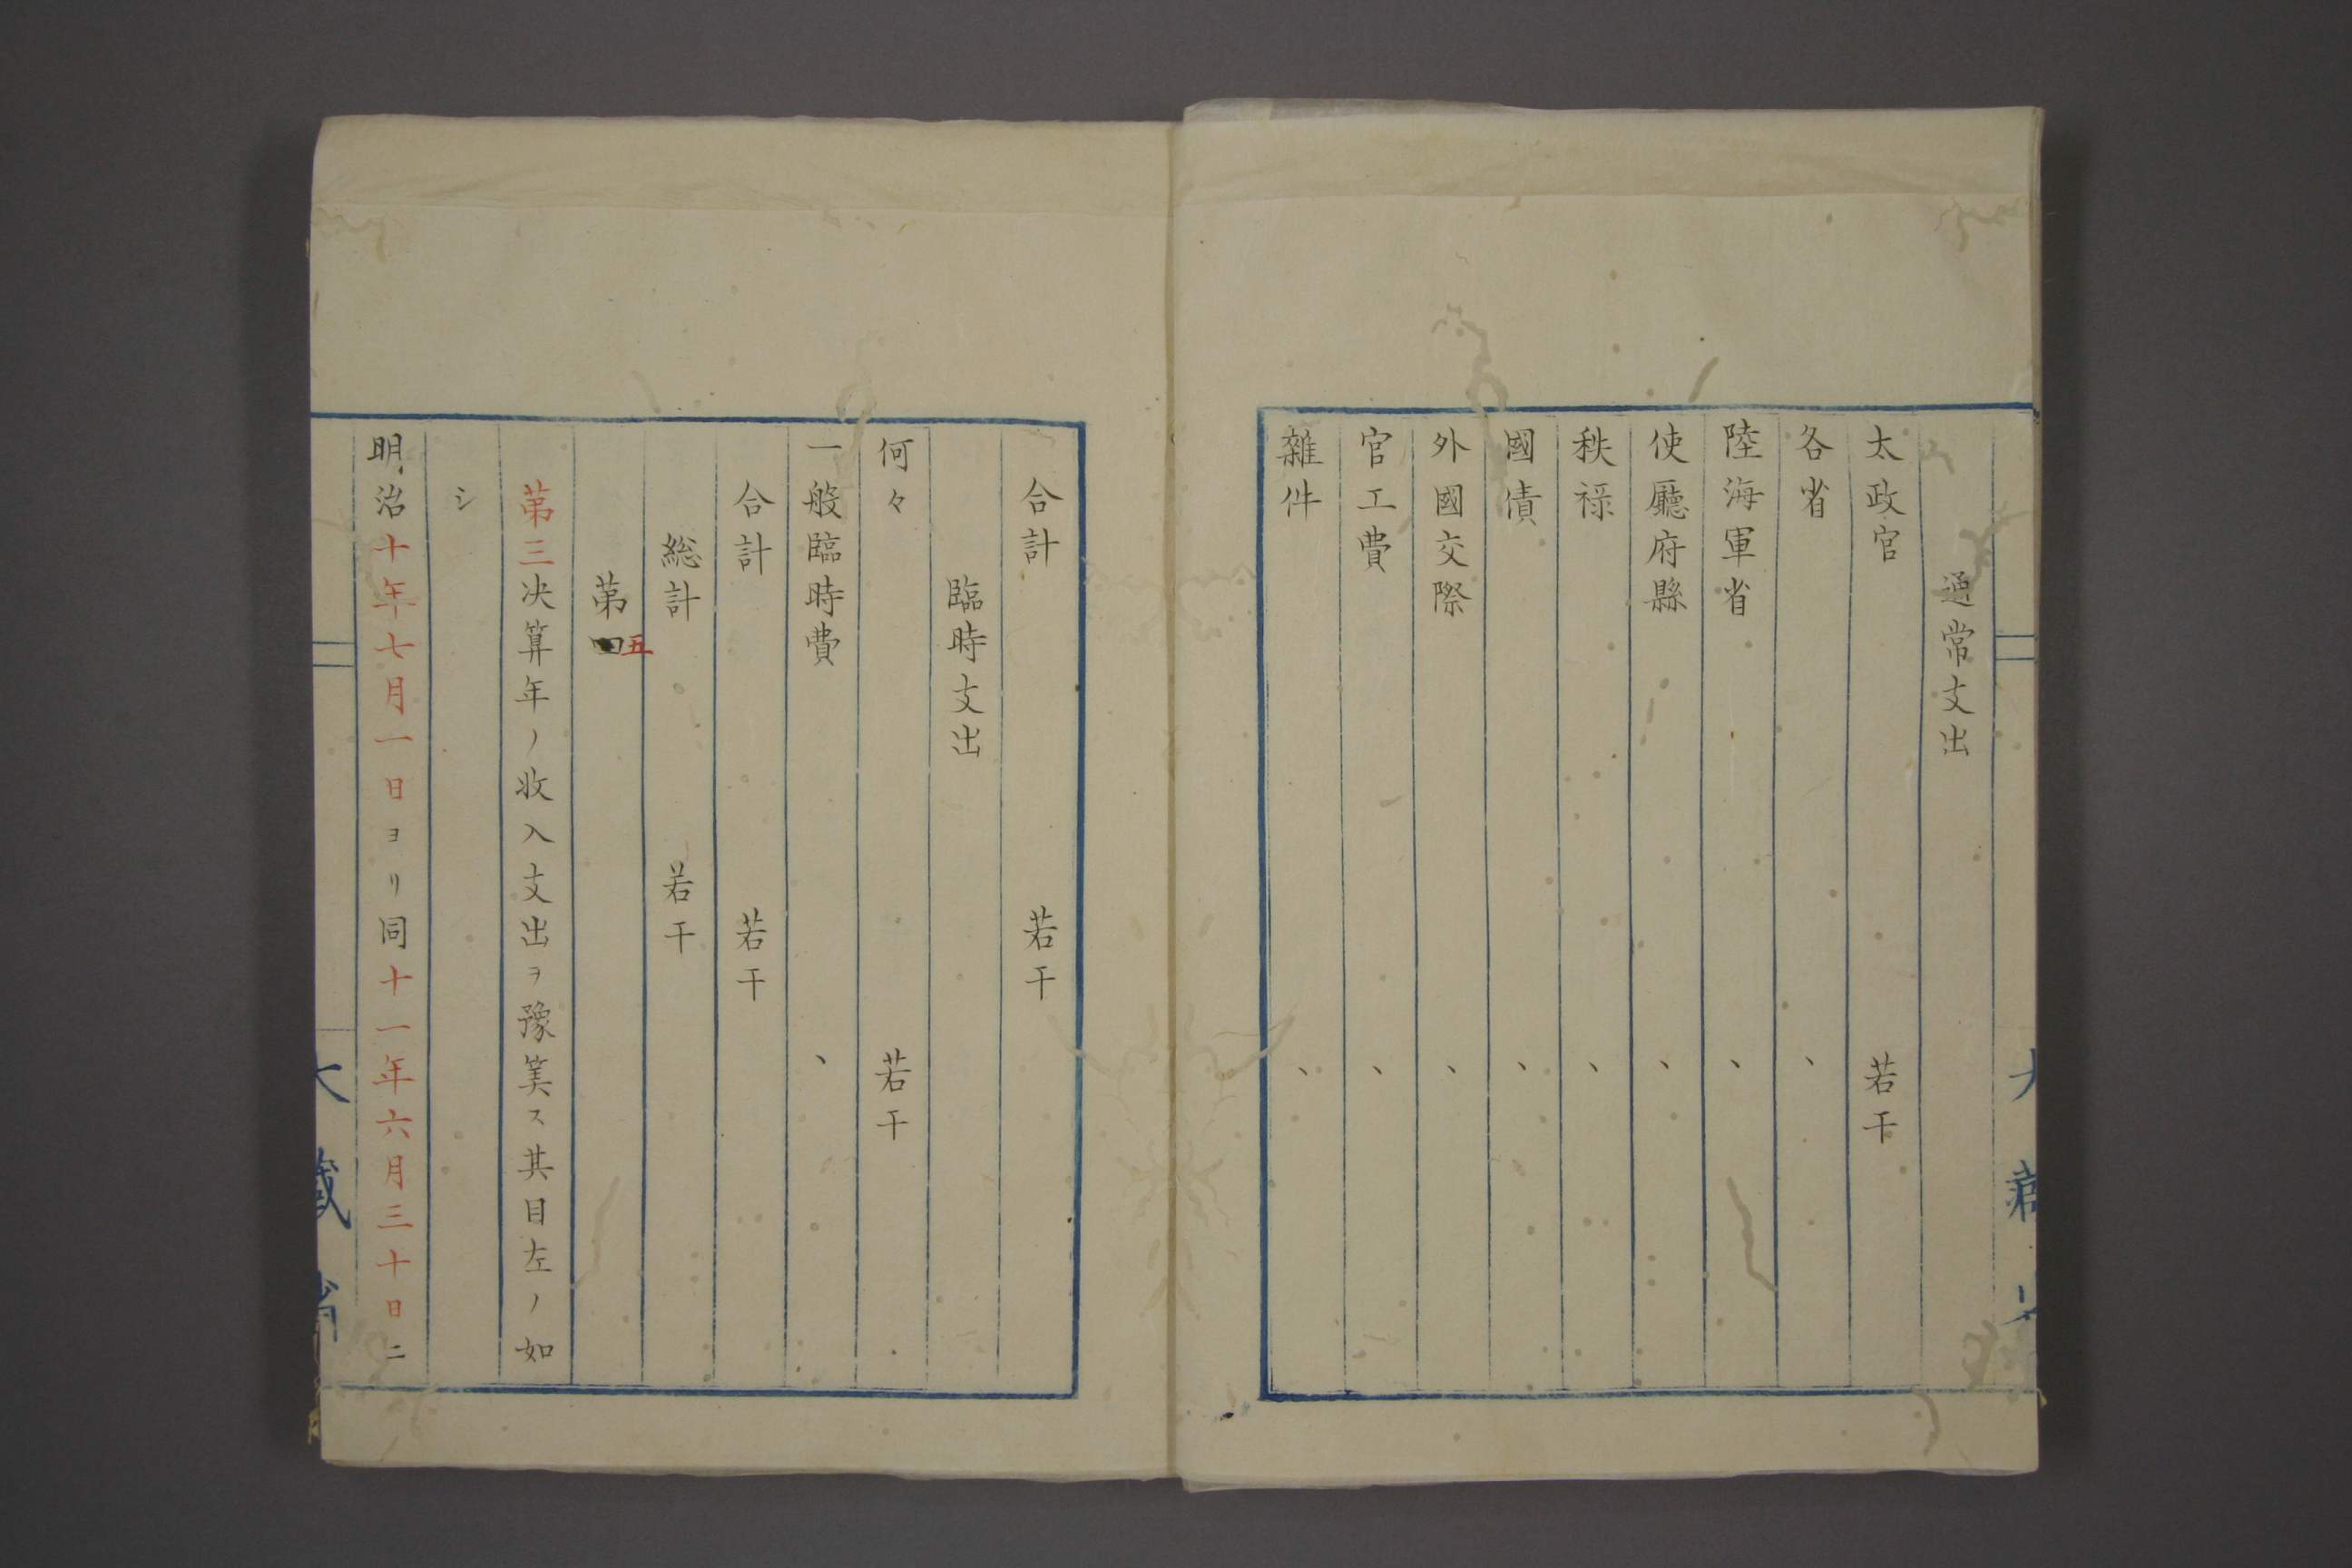 通常支出
太政官 若干
各省 、
陸海軍省 、
使廳府縣 、
秩祿 、
國債 、
外國交際 、
官工費 、
雜件 、
合計 若干
臨時支出
何々 若干
一般臨時費 、
合計 若干
総計 若干
第四五
第三決算年ノ收入支出ヲ豫筭ス其目左ノ如
シ
明治十年七月一日ヨリ同十一年六月三十日ニ
大藏省